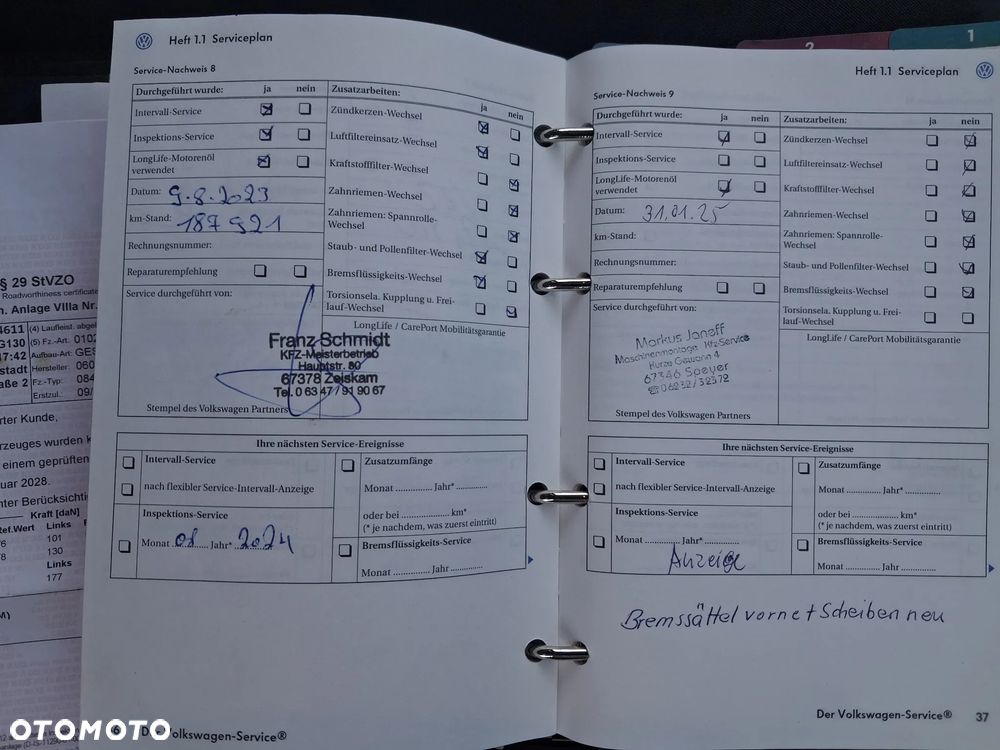 Heft 1.1 Serviceplan
Service-Nachweis 8
Durchgeführt wurde: ja nein
Intervall-Service
Inspektions-Service
LongLife-Motorenöl
verwendet
Datum: 9.8.2023
km-Stand: 187921
Rechnungsnummer:
Reparaturempfehlung
Service durchgeführt von:
Franz Schmidt
KFZ-Meisterbetrieb
Hauptstr. 80
67378 Zeiskam
Tel. 0 63 47 / 91 90 67
Stempel des Volkswagen Partners
Zusatzarbeiten: ja nein
Zündkerzen-Wechsel
Luftfiltereinsatz-Wechsel
Kraftstofffilter-Wechsel
Zahnriemen-Wechsel
Zahnriemen: Spannrolle-
Wechsel
Staub- und Pollenfilter-Wechsel
Bremsflüssigkeits-Wechsel
Torsionsela. Kupplung u. Frei-
lauf-Wechsel
LongLife / CarePort Mobilitätsgarantie
Ihre nächsten Service-Ereignisse
Intervall-Service
nach flexibler Service-Intervall-Anzeige
Inspektions-Service
Monat 08 Jahr* 2024
Zusatzumfänge
Monat .............. Jahr* ..............
oder bei .............. km*
(* je nachdem, was zuerst eintritt)
Bremsflüssigkeits-Service
Monat .............. Jahr ..............
Der Volkswagen-Service®
Heft 1.1 Serviceplan
Service-Nachweis 9
Durchgeführt wurde: ja nein
Intervall-Service
Inspektions-Service
LongLife-Motorenöl
verwendet
Datum: 31.01.25
km-Stand:
Rechnungsnummer:
Reparaturempfehlung
Service durchgeführt von:
Markus Janeff
Maschinenmontage Kfz-Service
Kurze Gewann 4
67346 Speyer
☎ 06232/32372
Stempel des Volkswagen Partners
Zusatzarbeiten: ja nein
Zündkerzen-Wechsel
Luftfiltereinsatz-Wechsel
Kraftstofffilter-Wechsel
Zahnriemen-Wechsel
Zahnriemen: Spannrolle-
Wechsel
Staub- und Pollenfilter-Wechsel
Bremsflüssigkeits-Wechsel
Torsionsela. Kupplung u. Frei-
lauf-Wechsel
LongLife / CarePort Mobilitätsgarantie
Ihre nächsten Service-Ereignisse
Intervall-Service
nach flexibler Service-Intervall-Anzeige
Inspektions-Service
Monat .............. Jahr* ..............
Anzeige
Zusatzumfänge
Monat .............. Jahr* ..............
oder bei .............. km*
(* je nachdem, was zuerst eintritt)
Bremsflüssigkeits-Service
Monat .............. Jahr ..............
Bremssättel vorne + Scheiben neu
Der Volkswagen-Service® 37
2
1
§ 29 StVZO
Roadworthiness certificate
n. Anlage VIIIa Nr.
4611 (4) Laufleist. abgel
G130 (5) Fz.-Art: 0102
17:42 Aufbau-Art: GES
stadt Hersteller: 060
aße 2 Fz.-Typ: 084
Erstzul.: 09/
rter Kunde,
rzeuges wurden k
einem geprüften
uar 2028.
nter Berücksichti
Kraft [daN]
Ref.Wert Links
101
130
Links
177
OTOMOTO